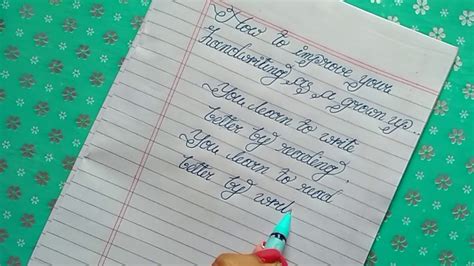 How to improve your
handwriting as a grown up...
You learn to write
better by reading
You learn to read
better by writ